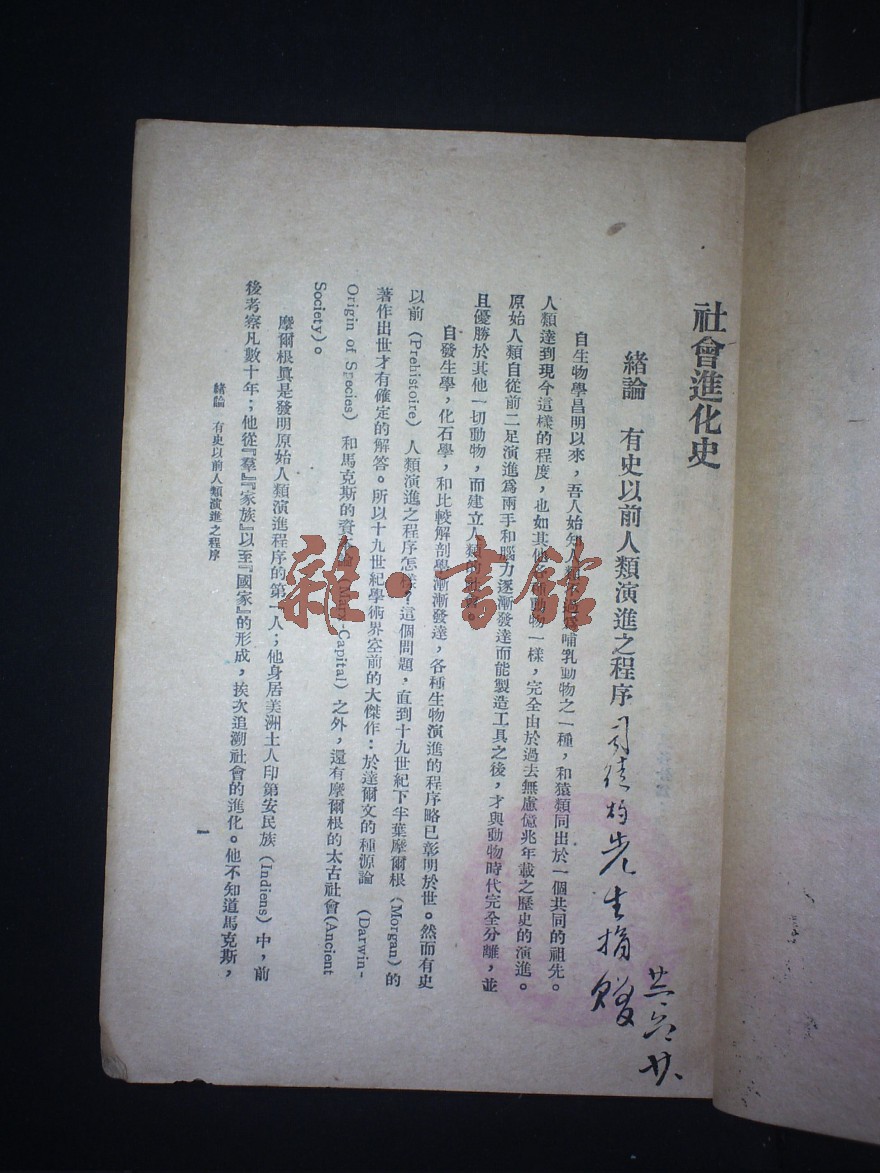 社會進化史
緒論　有史以前人類演進之程序
司徒灼先生捐贈
廿六、廿、
自生物學昌明以來，吾人始知人類 哺乳動物之一種，和猿類同出於一個共同的祖先。
人類達到現今這樣的程度，也如其他各種動物一樣，完全由於過去無慮億兆年載之歷史的演進。
原始人類自從前二足演進爲兩手和腦力逐漸發達而能製造工具之後，才與動物時代完全分離，並
且優勝於其他一切動物，而建立人類的 。
自發生學，化石學，和比較解剖學漸漸發達，各種生物演進的程序略已彰明於世。然而有史
以前（Prehistoire）人類演進之程序怎樣，這個問題，直到十九世紀下半葉摩爾根（Morgan）的
著作出世才有確定的解答。所以十九世紀學術界空前的大傑作：於達爾文的種源論（Darwin-
Origin of Species）和馬克斯的資本論（Marx-Capital）之外，還有摩爾根的太古社會（Ancient
Society）。
摩爾根眞是發明原始人類演進程序的第一人；他身居美洲土人印第安民族（Indiens）中，前
後考察凡數十年；他從『羣』『家族』以至『國家』的形成，挨次追溯社會的進化。他不知道馬克斯，
緒論　有史以前人類演進之程序
一
雜·書館